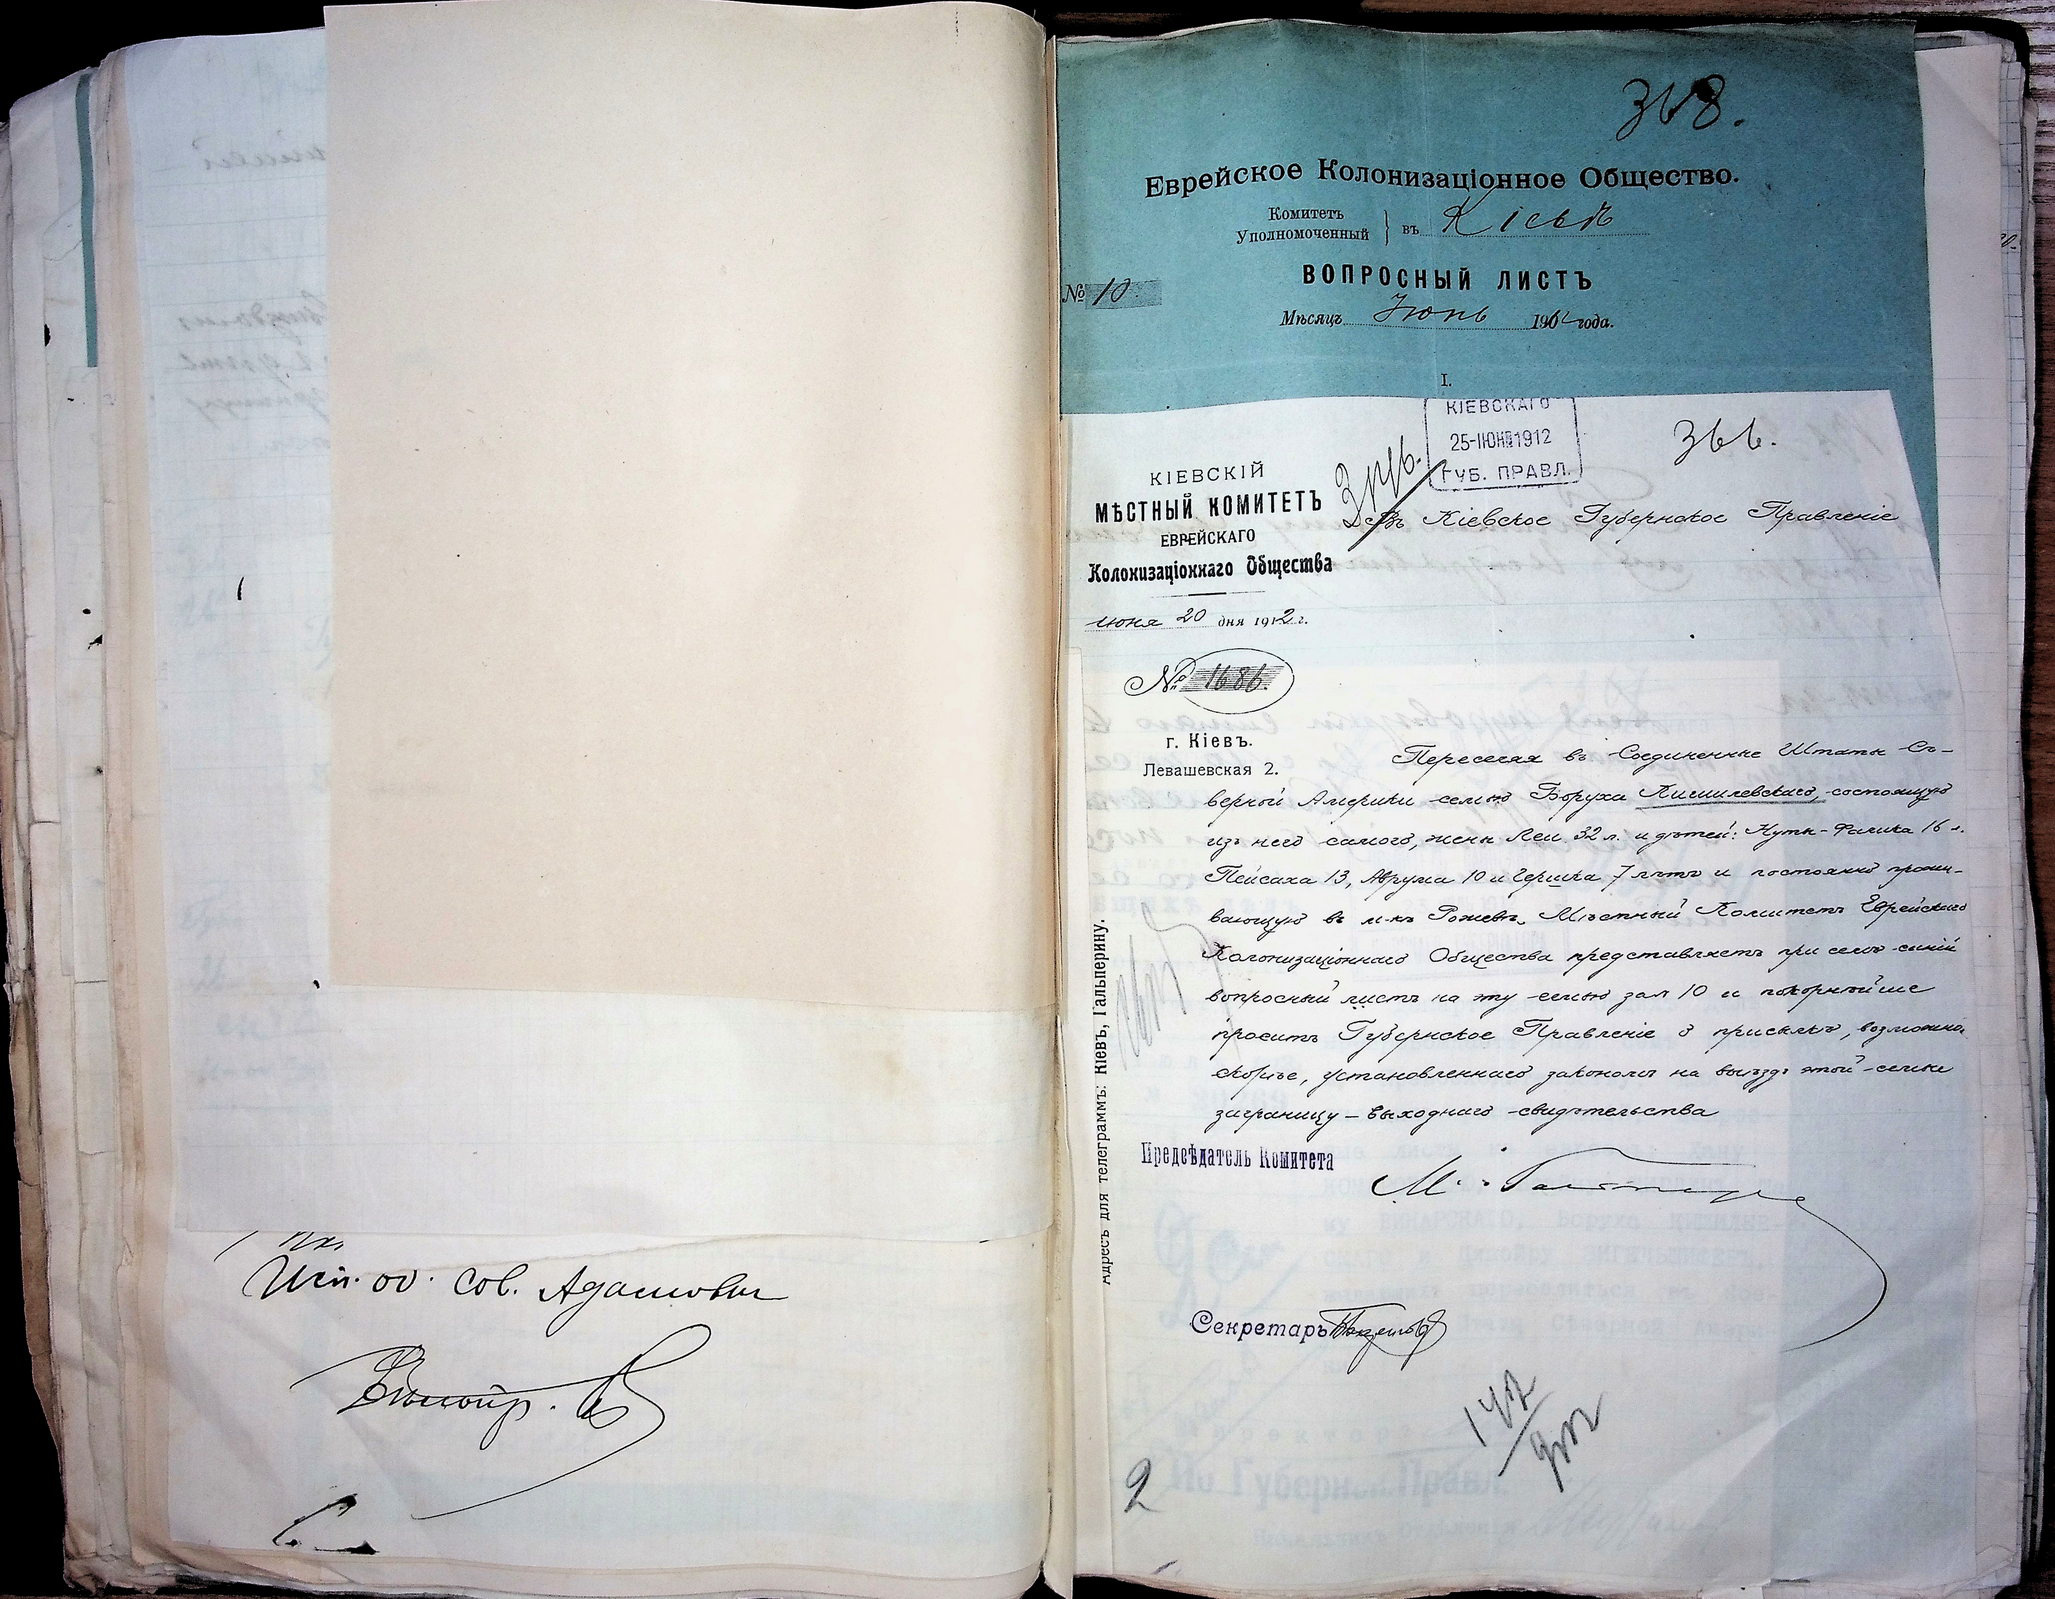 Исп. об. сов. Адамович
368.
Еврейское Колонизаціонное Общество.
Комитетъ
Уполномоченный } въ Кіевѣ
ВОПРОСНЫЙ ЛИСТЪ
№ 10
Мѣсяцъ Іюнь 191 года.
I.
КІЕВСКАГО
25-ІЮН 1912
ГУБ. ПРАВЛ.
366.
КІЕВСКІЙ
МѢСТНЫЙ КОМИТЕТЪ
ЕВРЕЙСКАГО
Колонизаціоннаго Общества
Въ Кіевское Губернское Правленіе
июня 20 дня 1912 г.
№ 1686.
г. Кіевъ.
Левашевская 2.
Переселяя въ Соединенные Штаты Сѣ-
верной Америки семью Боруха Кисилевскаго, состоящую
изъ него самого, жены Леи 32 л. и дѣтей: Нуты-Фалика 16 л.
Пейсаха 13, Аврума 10 и Гершка 7 лѣтъ и постоянно прожи-
вающую въ м-кѣ Рожевъ, Мѣстный Комитетъ Еврейскаго
Колонизаціоннаго Общества представляетъ при семъ синій
вопросный листъ на эту семью за № 10 и покорнѣйше
проситъ Губернское Правленіе о присылкѣ, возможно
скорѣе, установленнаго закономъ на выѣздъ этой семьи
заграницу – выходнаго свидѣтельства
Адресъ для телеграммъ: Кіевъ, Гальперину.
Предсѣдатель Комитета
Секретарь
2